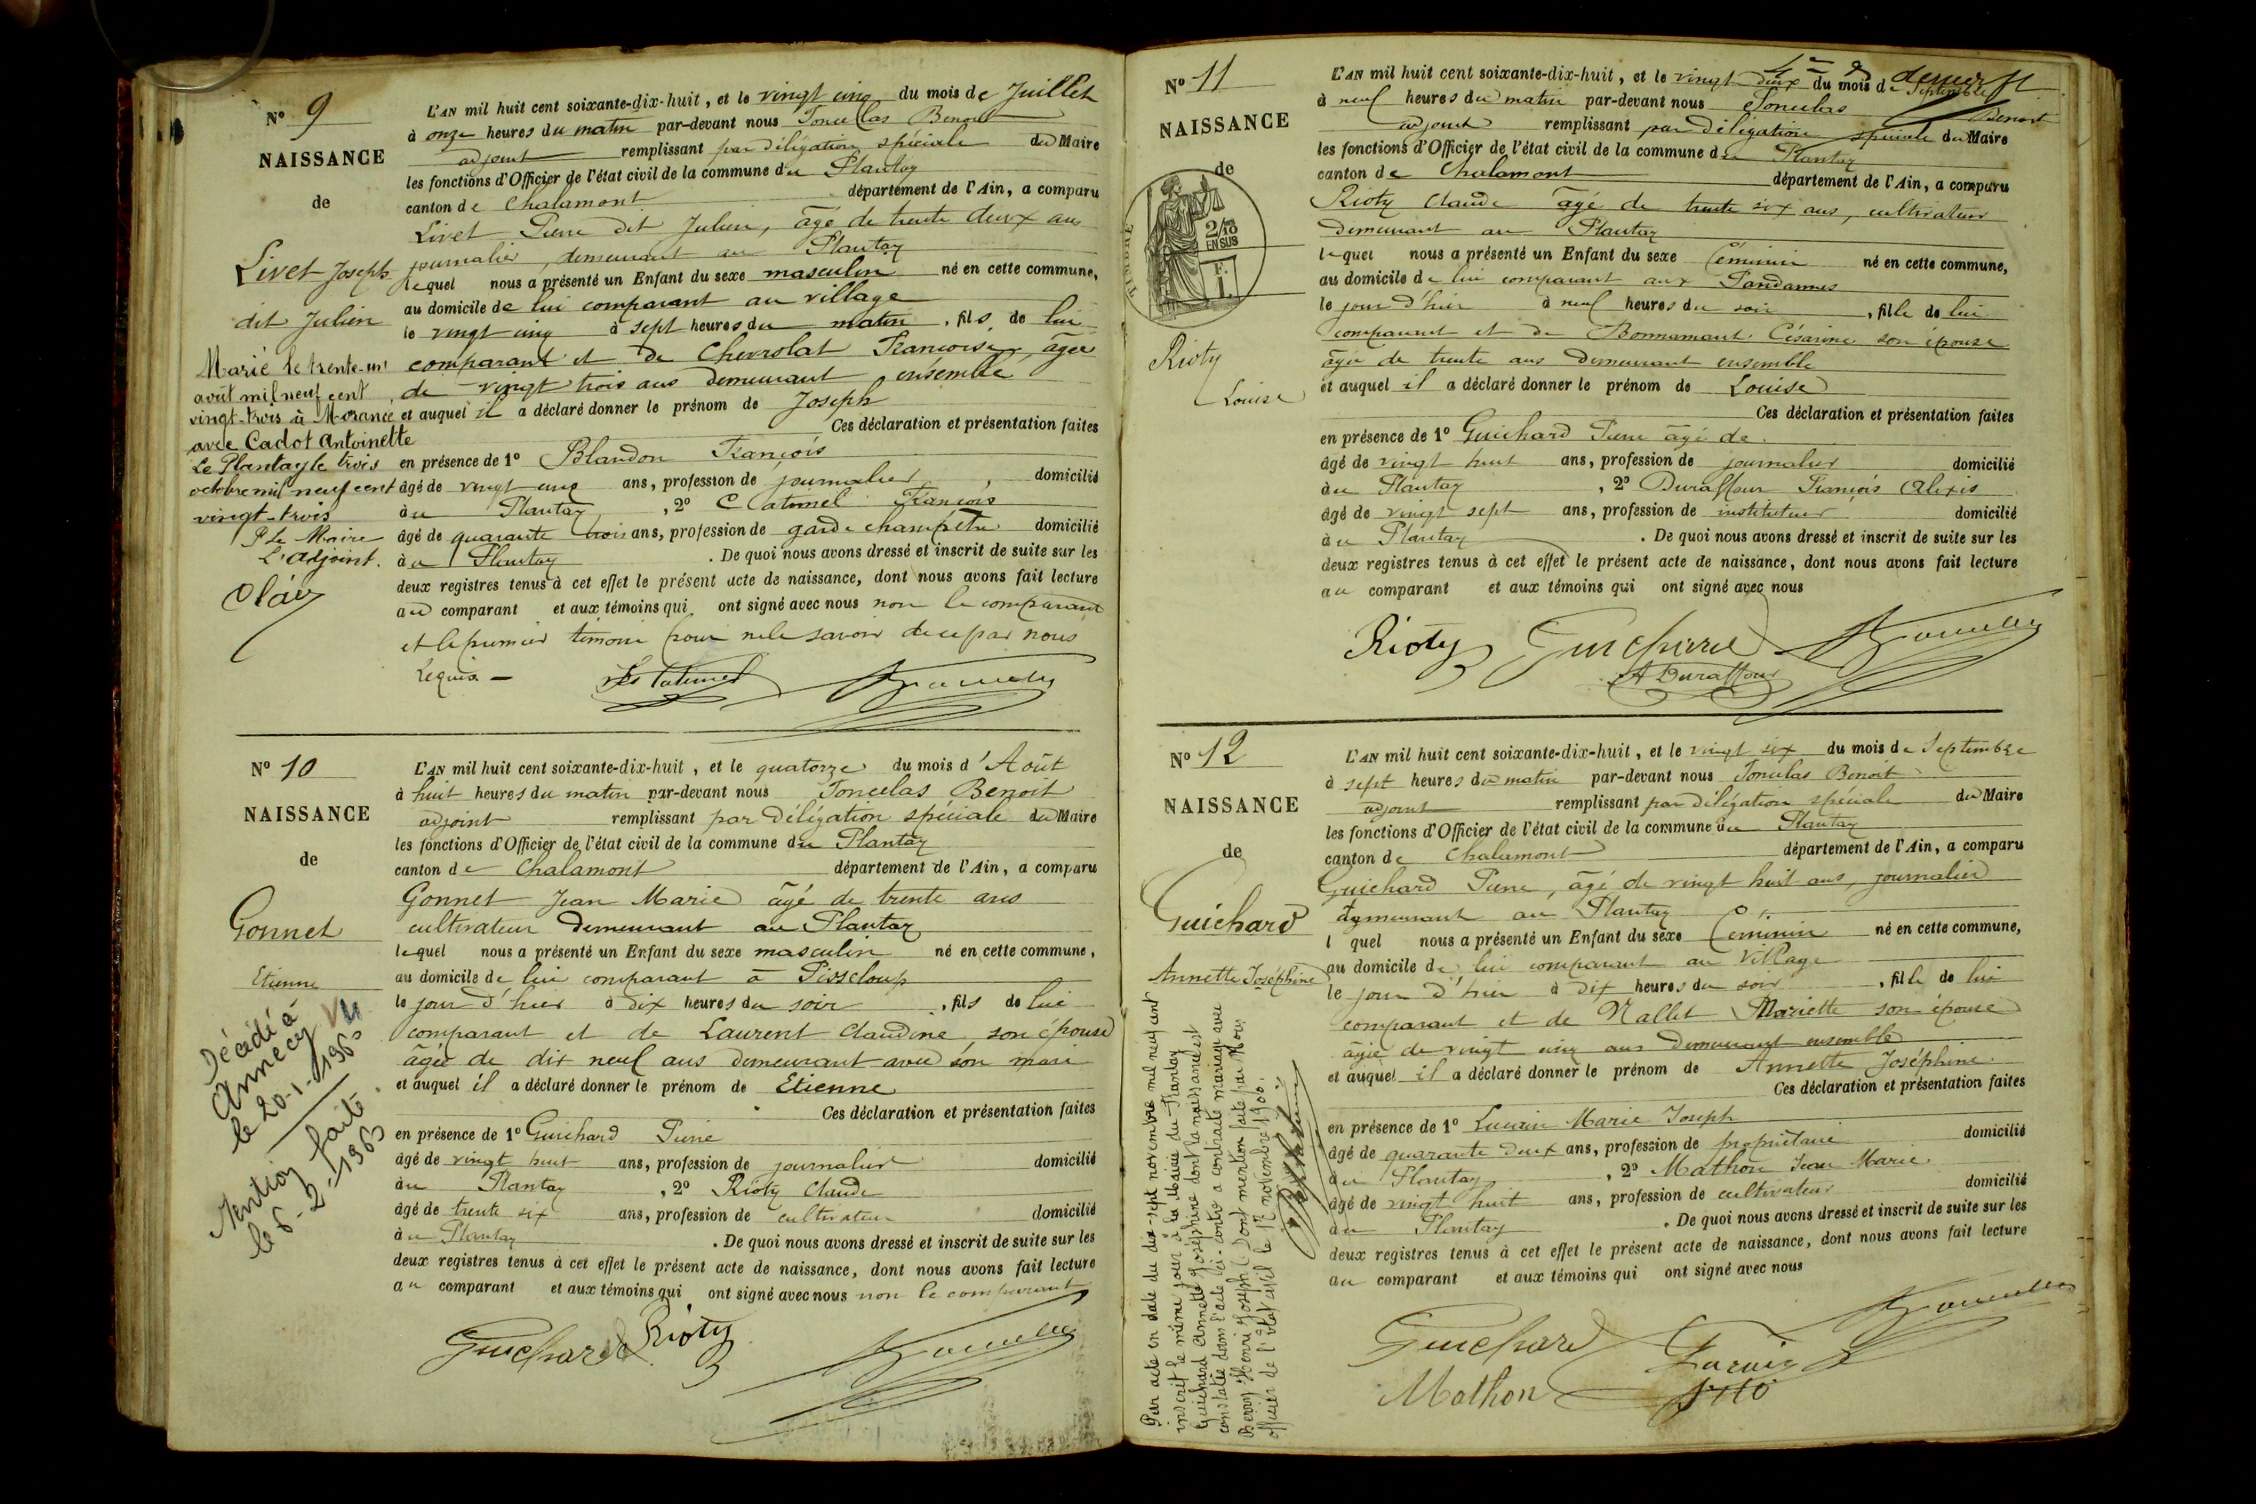 Nº 9
NAISSANCE
de
Livet Joseph
dit Julien
Marié le trente-un
août mil neuf cent
vingt-trois à Morancé
avec Cadot Antoinette
Le Plantay le trois
octobre mil neuf cent
vingt-trois
P. Le Maire
L'adjoint.
L'AN mil huit cent soixante-dix-huit, et le vingt cinq du mois de Juillet
à onze heures du matin par-devant nous Joncelas Benoit
adjoint remplissant par déligation spéciale du Maire
les fonctions d'Officier de l'état civil de la commune du Plantay
canton de Chalamont département de l'Ain, a comparu
Livet Pierre dit Julien, âgé de trente deux ans
journalier, demeurant au Plantay
lequel nous a présenté un Enfant du sexe masculin né en cette commune,
au domicile de lui comparant au village
le vingt cinq à sept heures du matin, fils de lui
comparant et de Chevrolat Françoise, âgée
de vingt trois ans demeurant ensemble
et auquel il a déclaré donner le prénom de Joseph
Ces déclaration et présentation faites
en présence de 1º Blandon François
âgé de vingt cinq ans, profession de journalier domicilié
au Plantay, 2º Catimel François
âgé de quarante trois ans, profession de garde champêtre domicilié
au Plantay. De quoi nous avons dressé et inscrit de suite sur les
deux registres tenus à cet effet le présent acte de naissance, dont nous avons fait lecture
au comparant et aux témoins qui ont signé avec nous non le comparant
et le premier témoin pour ne le savoir de ce par nous
requis —
Nº 10
NAISSANCE
de
Gonnet
Etienne
Décédé à
Annecy
le 20-1-1960
Mention faite
le 6-2-1960
L'AN mil huit cent soixante-dix-huit, et le quatorze du mois d'Août
à huit heures du matin par-devant nous Joncelas Benoit
adjoint remplissant par déligation spéciale du Maire
les fonctions d'Officier de l'état civil de la commune du Plantay
canton de Chalamont département de l'Ain, a comparu
Gonnet Jean Marie âgé de trente ans
cultivateur demeurant au Plantay
lequel nous a présenté un Enfant du sexe masculin né en cette commune,
au domicile de lui comparant à Pisseloup
le jour d'hier à dix heures du soir, fils de lui
comparant et de Laurent Claudine son épouse
âgée de dix neuf ans demeurant avec son mari
et auquel il a déclaré donner le prénom de Etienne
Ces déclaration et présentation faites
en présence de 1º Guichard Pierre
âgé de vingt huit ans, profession de journalier domicilié
au Plantay, 2º Rioty Claude
âgé de trente six ans, profession de cultivateur domicilié
au Plantay. De quoi nous avons dressé et inscrit de suite sur les
deux registres tenus à cet effet le présent acte de naissance, dont nous avons fait lecture
au comparant et aux témoins qui ont signé avec nous non le comparant
Guichard Rioty
Nº 11
NAISSANCE
de
TIMBRE
2/10
EN SUS
F.
1.
Rioty
Louise
L'AN mil huit cent soixante-dix-huit, et le vingt deux du mois de Septembre
à neuf heures du matin par-devant nous Joncelas Benoit
adjoint remplissant par déligation spéciale du Maire
les fonctions d'Officier de l'état civil de la commune du Plantay
canton de Chalamont département de l'Ain, a comparu
Rioty Claude âgé de trente six ans, cultivateur
demeurant au Plantay
lequel nous a présenté un Enfant du sexe féminin né en cette commune,
au domicile de lui comparant aux Pandannes
le jour d'hier à neuf heures du soir, fille de lui
comparant et de Bonnamant Césarine son épouse
âgée de trente ans demeurant ensemble
et auquel il a déclaré donner le prénom de Louise
Ces déclaration et présentation faites
en présence de 1º Guichard Pierre âgé de
âgé de vingt huit ans, profession de journalier domicilié
au Plantay, 2º Duraffour François Alexis
âgé de vingt sept ans, profession de instituteur domicilié
au Plantay. De quoi nous avons dressé et inscrit de suite sur les
deux registres tenus à cet effet le présent acte de naissance, dont nous avons fait lecture
au comparant et aux témoins qui ont signé avec nous
Rioty Guichard
A Duraffour
Nº 12
NAISSANCE
de
Guichard
Annette Joséphine
Par acte en date du dix-sept novembre mil neuf cent
inscrit le même jour à la Mairie du Plantay
Guichard Annette Joséphine dont la naissance est
constatée dans l'acte ci-contre a contracté mariage avec
Berry Henri Joseph. Dont mention faite par Nous
officier de l'état civil le 17 novembre 1900.
L'AN mil huit cent soixante-dix-huit, et le vingt six du mois de Septembre
à sept heures du matin par-devant nous Joncelas Benoit
adjoint remplissant par déligation spéciale du Maire
les fonctions d'Officier de l'état civil de la commune du Plantay
canton de Chalamont département de l'Ain, a comparu
Guichard Pierre, âgé de vingt huit ans, journalier
demeurant au Plantay
l quel nous a présenté un Enfant du sexe féminin né en cette commune,
au domicile de lui comparant au village
le jour d'hier à dix heures du soir, fille de lui
comparant et de Nallet Mariette son épouse
âgée de vingt cinq ans demeurant ensemble
et auquel il a déclaré donner le prénom de Annette Joséphine.
Ces déclaration et présentation faites
en présence de 1º Lucain Marie Joseph
âgé de quarante deux ans, profession de propriétaire domicilié
au Plantay, 2º Mathon Jean Marie
âgé de vingt huit ans, profession de cultivateur domicilié
au Plantay. De quoi nous avons dressé et inscrit de suite sur les
deux registres tenus à cet effet le présent acte de naissance, dont nous avons fait lecture
au comparant et aux témoins qui ont signé avec nous
Guichard
Mathon